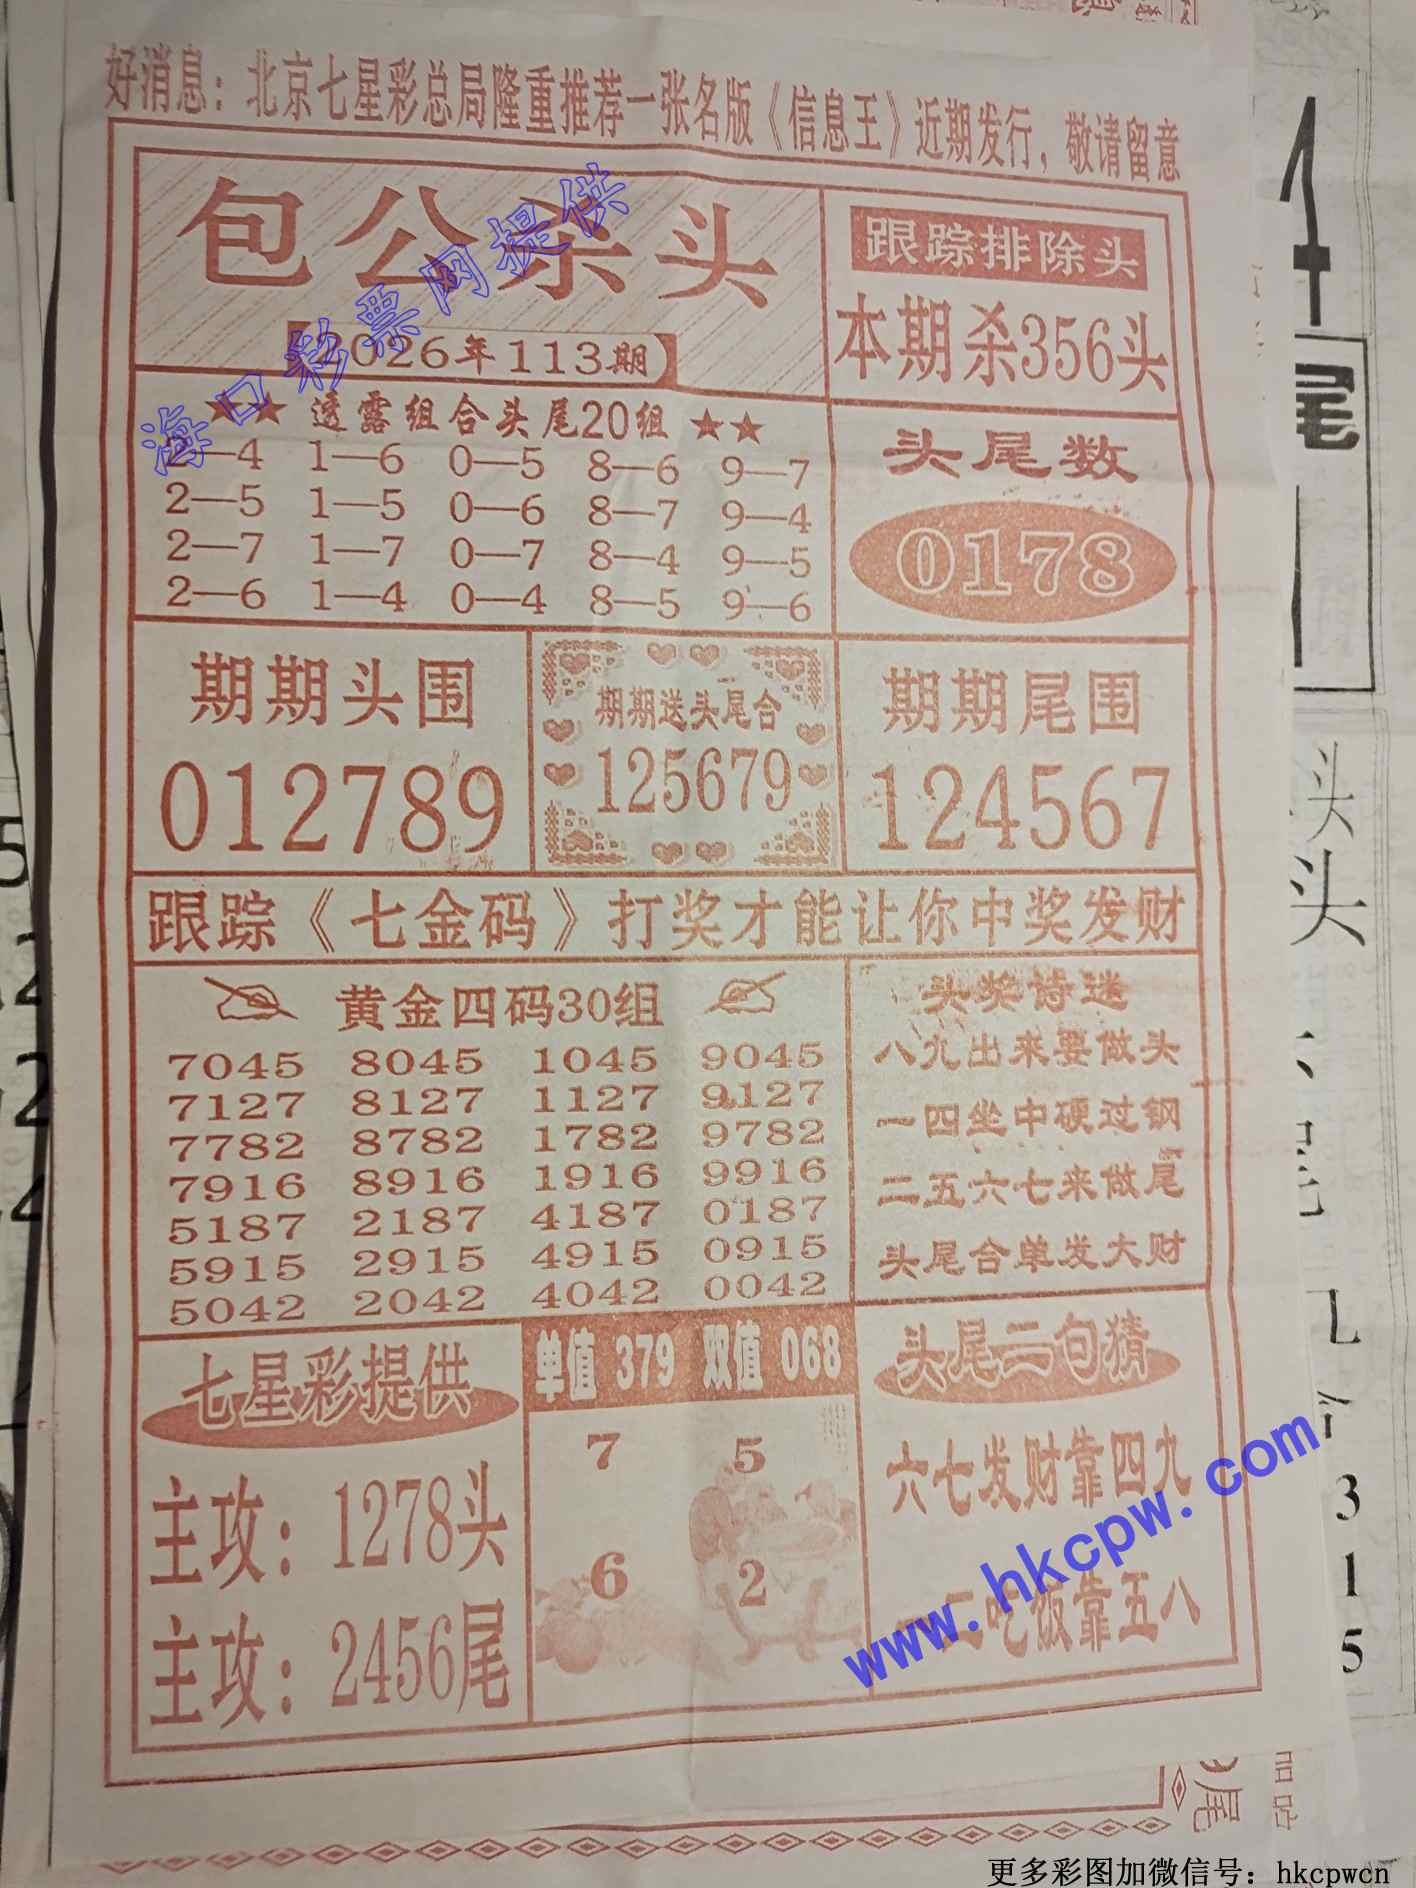 好消息：北京七星彩总局隆重推荐一张名版《信息王》近期发行，敬请留意
包公杀头
2026年113期
跟踪排除头
本期杀356头
★★ 透露组合头尾20组 ★★
2—4 1—6 0—5 8—6 9—7
2—5 1—5 0—6 8—7 9—4
2—7 1—7 0—7 8—4 9—5
2—6 1—4 0—4 8—5 9—6
头尾数
0178
期期头围
012789
期期送头尾合
125679
期期尾围
124567
跟踪《七金码》打奖才能让你中奖发财
黄金四码30组
7045 8045 1045 9045
7127 8127 1127 9127
7782 8782 1782 9782
7916 8916 1916 9916
5187 2187 4187 0187
5915 2915 4915 0915
5042 2042 4042 0042
头奖诗迷
八九出来要做头
一四坐中硬过钢
二五六七来做尾
头尾合单发大财
七星彩提供
主攻：1278头
主攻：2456尾
单值 379 双值 068
7 5
6 2
头尾二句猜
六七发财靠四九
二吃饭靠五八
海口彩票网提供
www.hkcpw.com
尾
头
头
3
1
5
尾
更多彩图加微信号：hkcpwcn